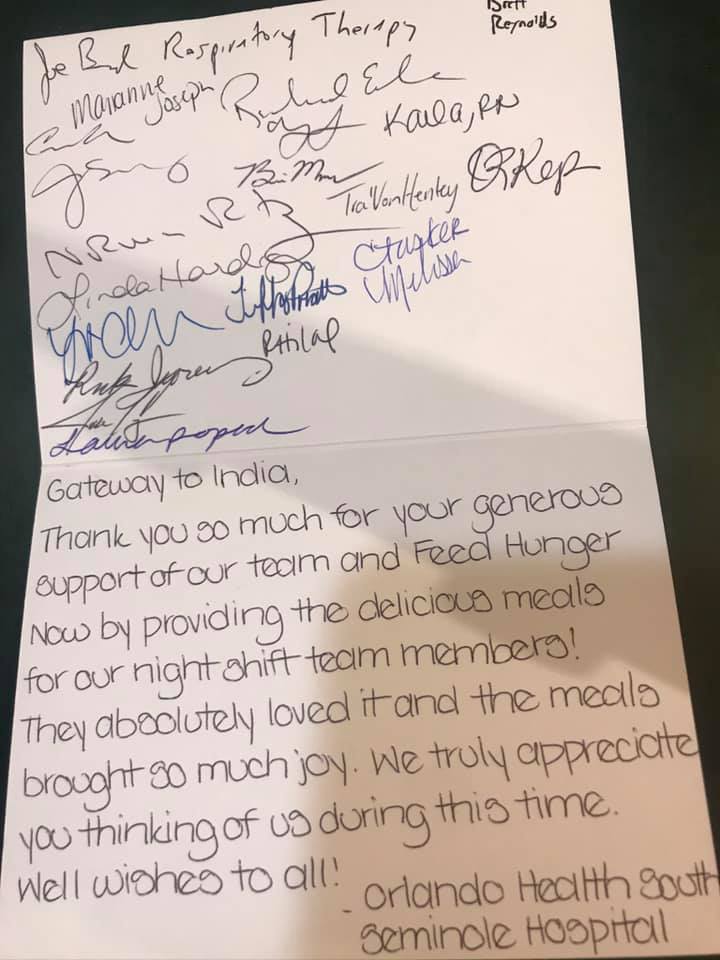 Brett
Reynolds
Joe Respiratory Therapy
Marianne
Joseph
Kaila, RN
TraVon Henley
Linda
Ctasker
Melissa
Gateway to India,
Thank you so much for your generous
support of our team and Feed Hunger
Now by providing the delicious meals
for our night shift team members!
They absolutely loved it and the meals
brought so much joy. We truly appreciate
you thinking of us during this time.
Well wishes to all!
- Orlando Health South
Seminole Hospital